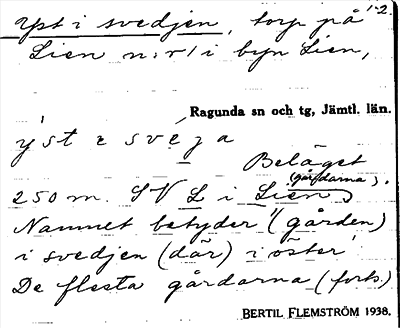 1-2.
Yst i svedjen, torp på
Lien n:r 1 i byn Lien,
Ragunda sn och tg, Jämtl. län.
ýst ɛ své̱ja
Beläget
(gårdarna).
250 m. SV L i Lien
Namnet betyder "(gården)
i svedjen (där) i öster"
De flesta gårdarna (forts.)
BERTIL FLEMSTRÖM 1938.